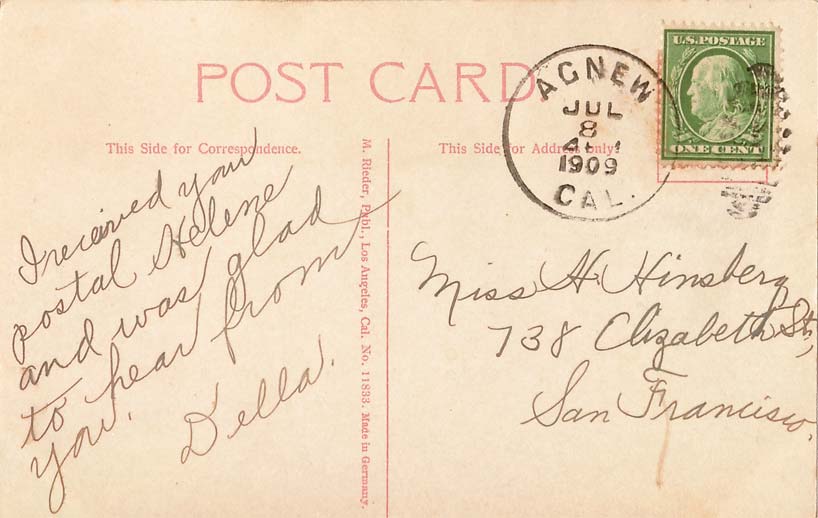 POST CARD
AGNEW
JUL
8
1909
CAL.
U.S. POSTAGE
ONE CENT
This Side for Correspondence.
This Side for Address only.
I received your
postal Helene
and was glad
to hear from
you.
Della.
M. Rieder, Publ., Los Angeles, Cal. No. 11833. Made in Germany.
Miss H. Hinsberg
738 Elizabeth St.,
San Francisco.